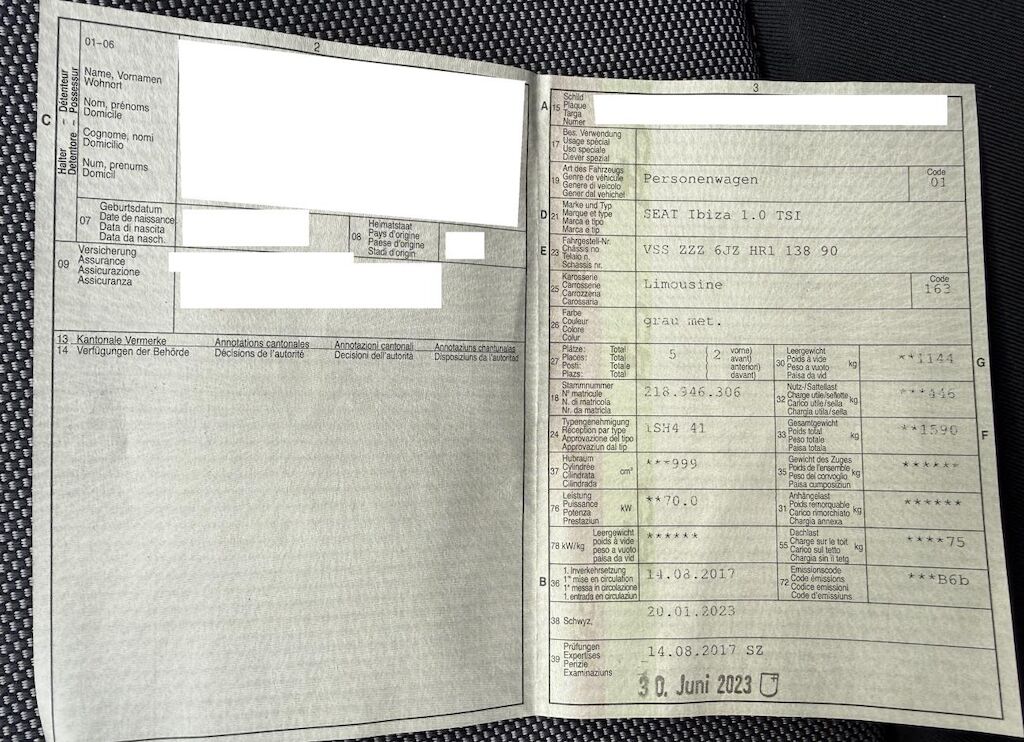 2
01-06
Halter – Détenteur
Detentore – Possessur
C
Name, Vornamen
Wohnort
Nom, prénoms
Domicile
Cognome, nomi
Domicilio
Num, prenums
Domicil
07
Geburtsdatum
Date de naissance
Data di nascita
Data da nasch.
08
Heimatstaat
Pays d'origine
Paese d'origine
Stadi d'origin
09
Versicherung
Assurance
Assicurazione
Assicuranza
13 Kantonale Vermerke Annotations cantonales Annotazioni cantonali Annotaziuns chantunalas
14 Verfügungen der Behörde Décisions de l'autorité Decisioni dell'autorità Disposiziuns da l'autoritad
3
A 15
Schild
Plaque
Targa
Numer
17
Bes. Verwendung
Usage spécial
Uso speciale
Diever spezial
19
Art des Fahrzeugs
Genre de véhicule
Genere di veicolo
Gener dal vehichel
Personenwagen
Code
01
D 21
Marke und Typ
Marque et type
Marca e tipo
Marca e tip
SEAT Ibiza 1.0 TSI
E 23
Fahrgestell-Nr.
Châssis no
Telaio n.
Schassis nr.
VSS ZZZ 6JZ HR1 138 90
25
Karosserie
Carrosserie
Carrozzeria
Carossaria
Limousine
Code
163
26
Farbe
Couleur
Colore
Colur
grau met.
27
Plätze: Total
Places: Total
Posti: Totale
Plazs: Total
5
( 2
vorne)
avant)
anteriori)
davant)
30
Leergewicht
Poids à vide
Peso a vuoto
Paisa da vid
kg
**1144
G
18
Stammnummer
N° matricule
N. di matricola
Nr. da matricla
218.946.306
32
Nutz-/Sattellast
Charge utile/sellette
Carico utile/sella
Chargia utila/sella
kg
***446
24
Typengenehmigung
Réception par type
Approvazione del tipo
Approvaziun dal tip
1SH4 41
33
Gesamtgewicht
Poids total
Peso totale
Paisa totala
kg
**1590
F
37
Hubraum
Cylindrée
Cilindrata
Cilindrada
cm³
***999
35
Gewicht des Zuges
Poids de l'ensemble
Peso del convoglio
Paisa cumposiziun
kg
******
76
Leistung
Puissance
Potenza
Prestaziun
kW
**70.0
31
Anhängelast
Poids remorquable
Carico rimorchiato
Chargia annexa
kg
******
78 kW/kg
Leergewicht
poids à vide
peso a vuoto
paisa da vid
******
55
Dachlast
Charge sur le toit
Carico sul tetto
Chargia sin il tetg
kg
****75
B 36
1. Inverkehrsetzung
1re mise en circulation
1a messa in circolazione
1. entrada en circulaziun
14.08.2017
72
Emissionscode
Code émissions
Codice emissioni
Code d'emissiuns
***B6b
38 Schwyz,
20.01.2023
39
Prüfungen
Expertises
Perizie
Examinaziuns
14.08.2017 SZ
30. Juni 2023